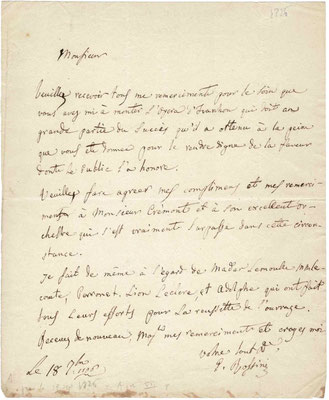 1826
Monsieur
Veuillez recevoir tous me remerciments pour le soin que
vous avez mi à monter l'opera d'Ivanhoe qui doit une
grande partie du succes qu'il a obtenu à la peine
que vous etes donnée pour le rendre digne de la faveur
dont le Public l'a honoré.
Veuillez faire agréer mes compliments et mes remerci-
ments à Monsieur Crémont et à son excellent or-
chestre qui s'est vraiment surpassé dans cette circon-
stance.
Je fait de même à l'égard de Madᵉˢ Lemoule
Perronet, Léon Leclère et Adolphe qui ont fait
tous leurs efforts pour la reussitte de l'ouvrage.
Recevez de nouveau mes remerciments et croyez moi
votre tout
G. Rossini
Le 18 7bre 1826